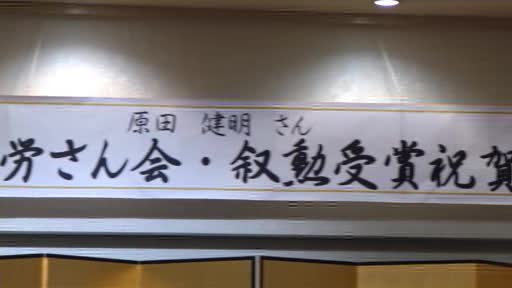 原田 健明 さん
労さん会・叙勲受賞祝賀